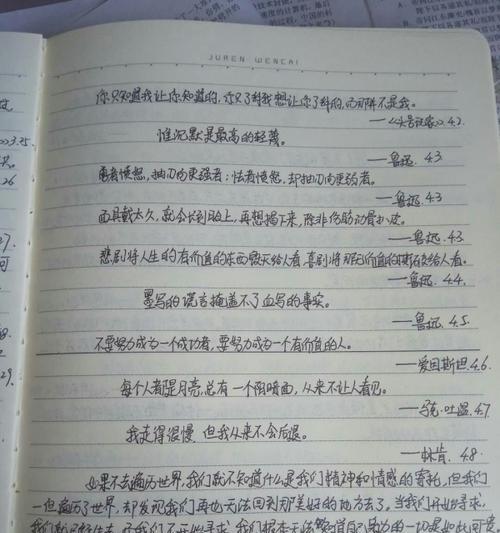 JUREN WENCAI
你只知道我让你知道的,你只了解我想让你了解的,而那不是我。
4.2.
惟沉默是最高的轻蔑。
——鲁迅. 4.3
勇者愤怒,抽刃向更强者;怯者愤怒,却抽刃向更弱者。
——鲁迅. 4.3
面具戴太久,就会长到脸上,再想揭下来,除非伤筋动骨扒皮。
——鲁迅. 4.3
悲剧将人生的有价值的东西毁灭给人看,喜剧将那无价值的撕破给人看。
——鲁迅. 4.4.
墨写的谎言掩盖不了血写的事实。
——鲁迅. 4.5.
不要努力成为一个成功者,要努力成为一个有价值的人。
——爱因斯坦. 4.6.
每个人都是月亮,总有一个阴暗面,从来不让人看见。
——马克·吐温. 4.7
我走得很慢,但我从来不会后退。
——林肯. 4.8
如果不去遍历世界,我们就不知道什么是我们精神和情感的寄托,但我们
一但遍历了世界,却发现我们再也无法回到那美好的地方去了。当我们开始寻求,